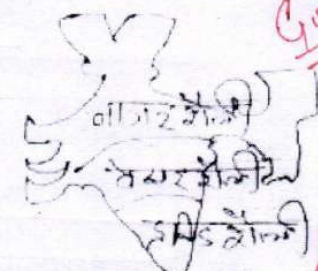 नागर शैली
बेसर शैली
द्रविड शैली